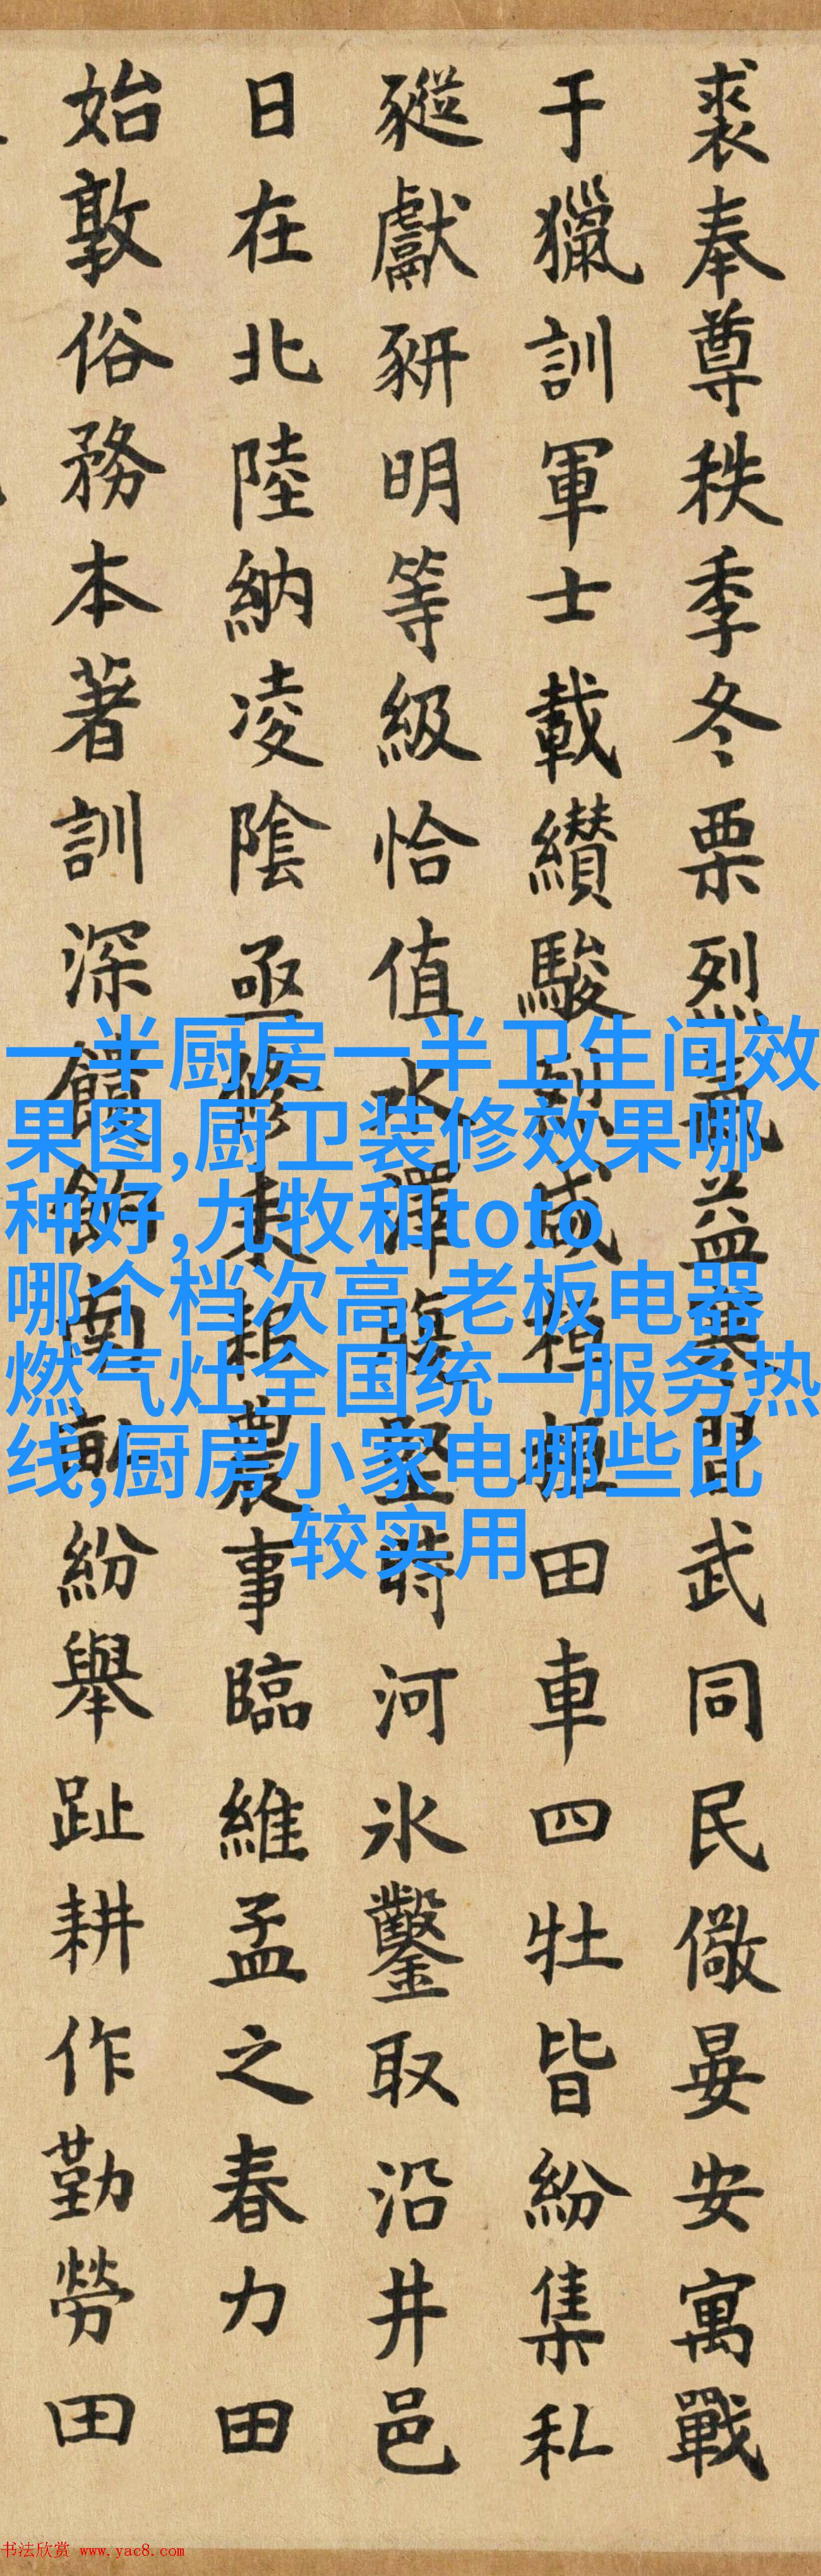 裘奉尊秩季冬栗烈氣益寒習武同民儆晏安寓戰
于獵訓軍士載纘駿烈咸田車四牡皆紛集私
豵獻豜明等級恰值水澤腹堅時河氷鑿取沿井邑
日在北陸納凌陰亟修耒耜農事臨維孟之春力田
始敦俗務本著訓深饁餉南畝紛舉趾耕作勤勞田
一半厨房一半卫生间效
果图,厨卫装修效果哪
种好,九牧和toto
哪个档次高,老板电器
燃气灶全国统一服务热
线,厨房小家电哪些比
较实用
书法欣赏 www.yac8.com